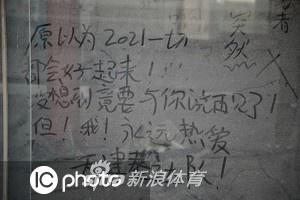 原以为2021一切
都会好起来!
没想到竟要与你说再见了!
但!我!永远热爱
突然
者
iC photo 新浪体育